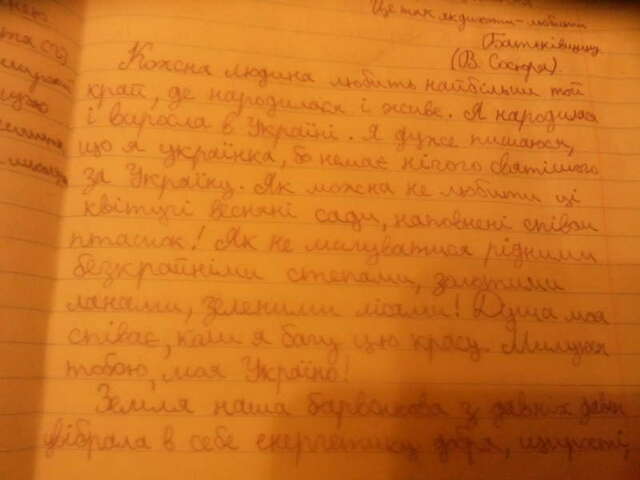 Це так як дихати - любити
Батьківщину
(В. Сосюра).
Кожна людина любить найбільше той
край, де народилася і живе. Я народилася
і виросла в Україні. Я дуже пишаюся,
що я українка, бо немає нічого святішого
за Україну. Як можна не любити ці
квітучі весняні сади, наповнені співом
пташок! Як не милуватися рідними
безкрайніми степами, золотими
ланами, зеленими лісами! Душа моя
співає, коли я бачу цю красу. Милуюсь
тобою, моя Україно!
Земля наша барвінкова з давніх давен
увібрала в себе енергетику добра, щирості,